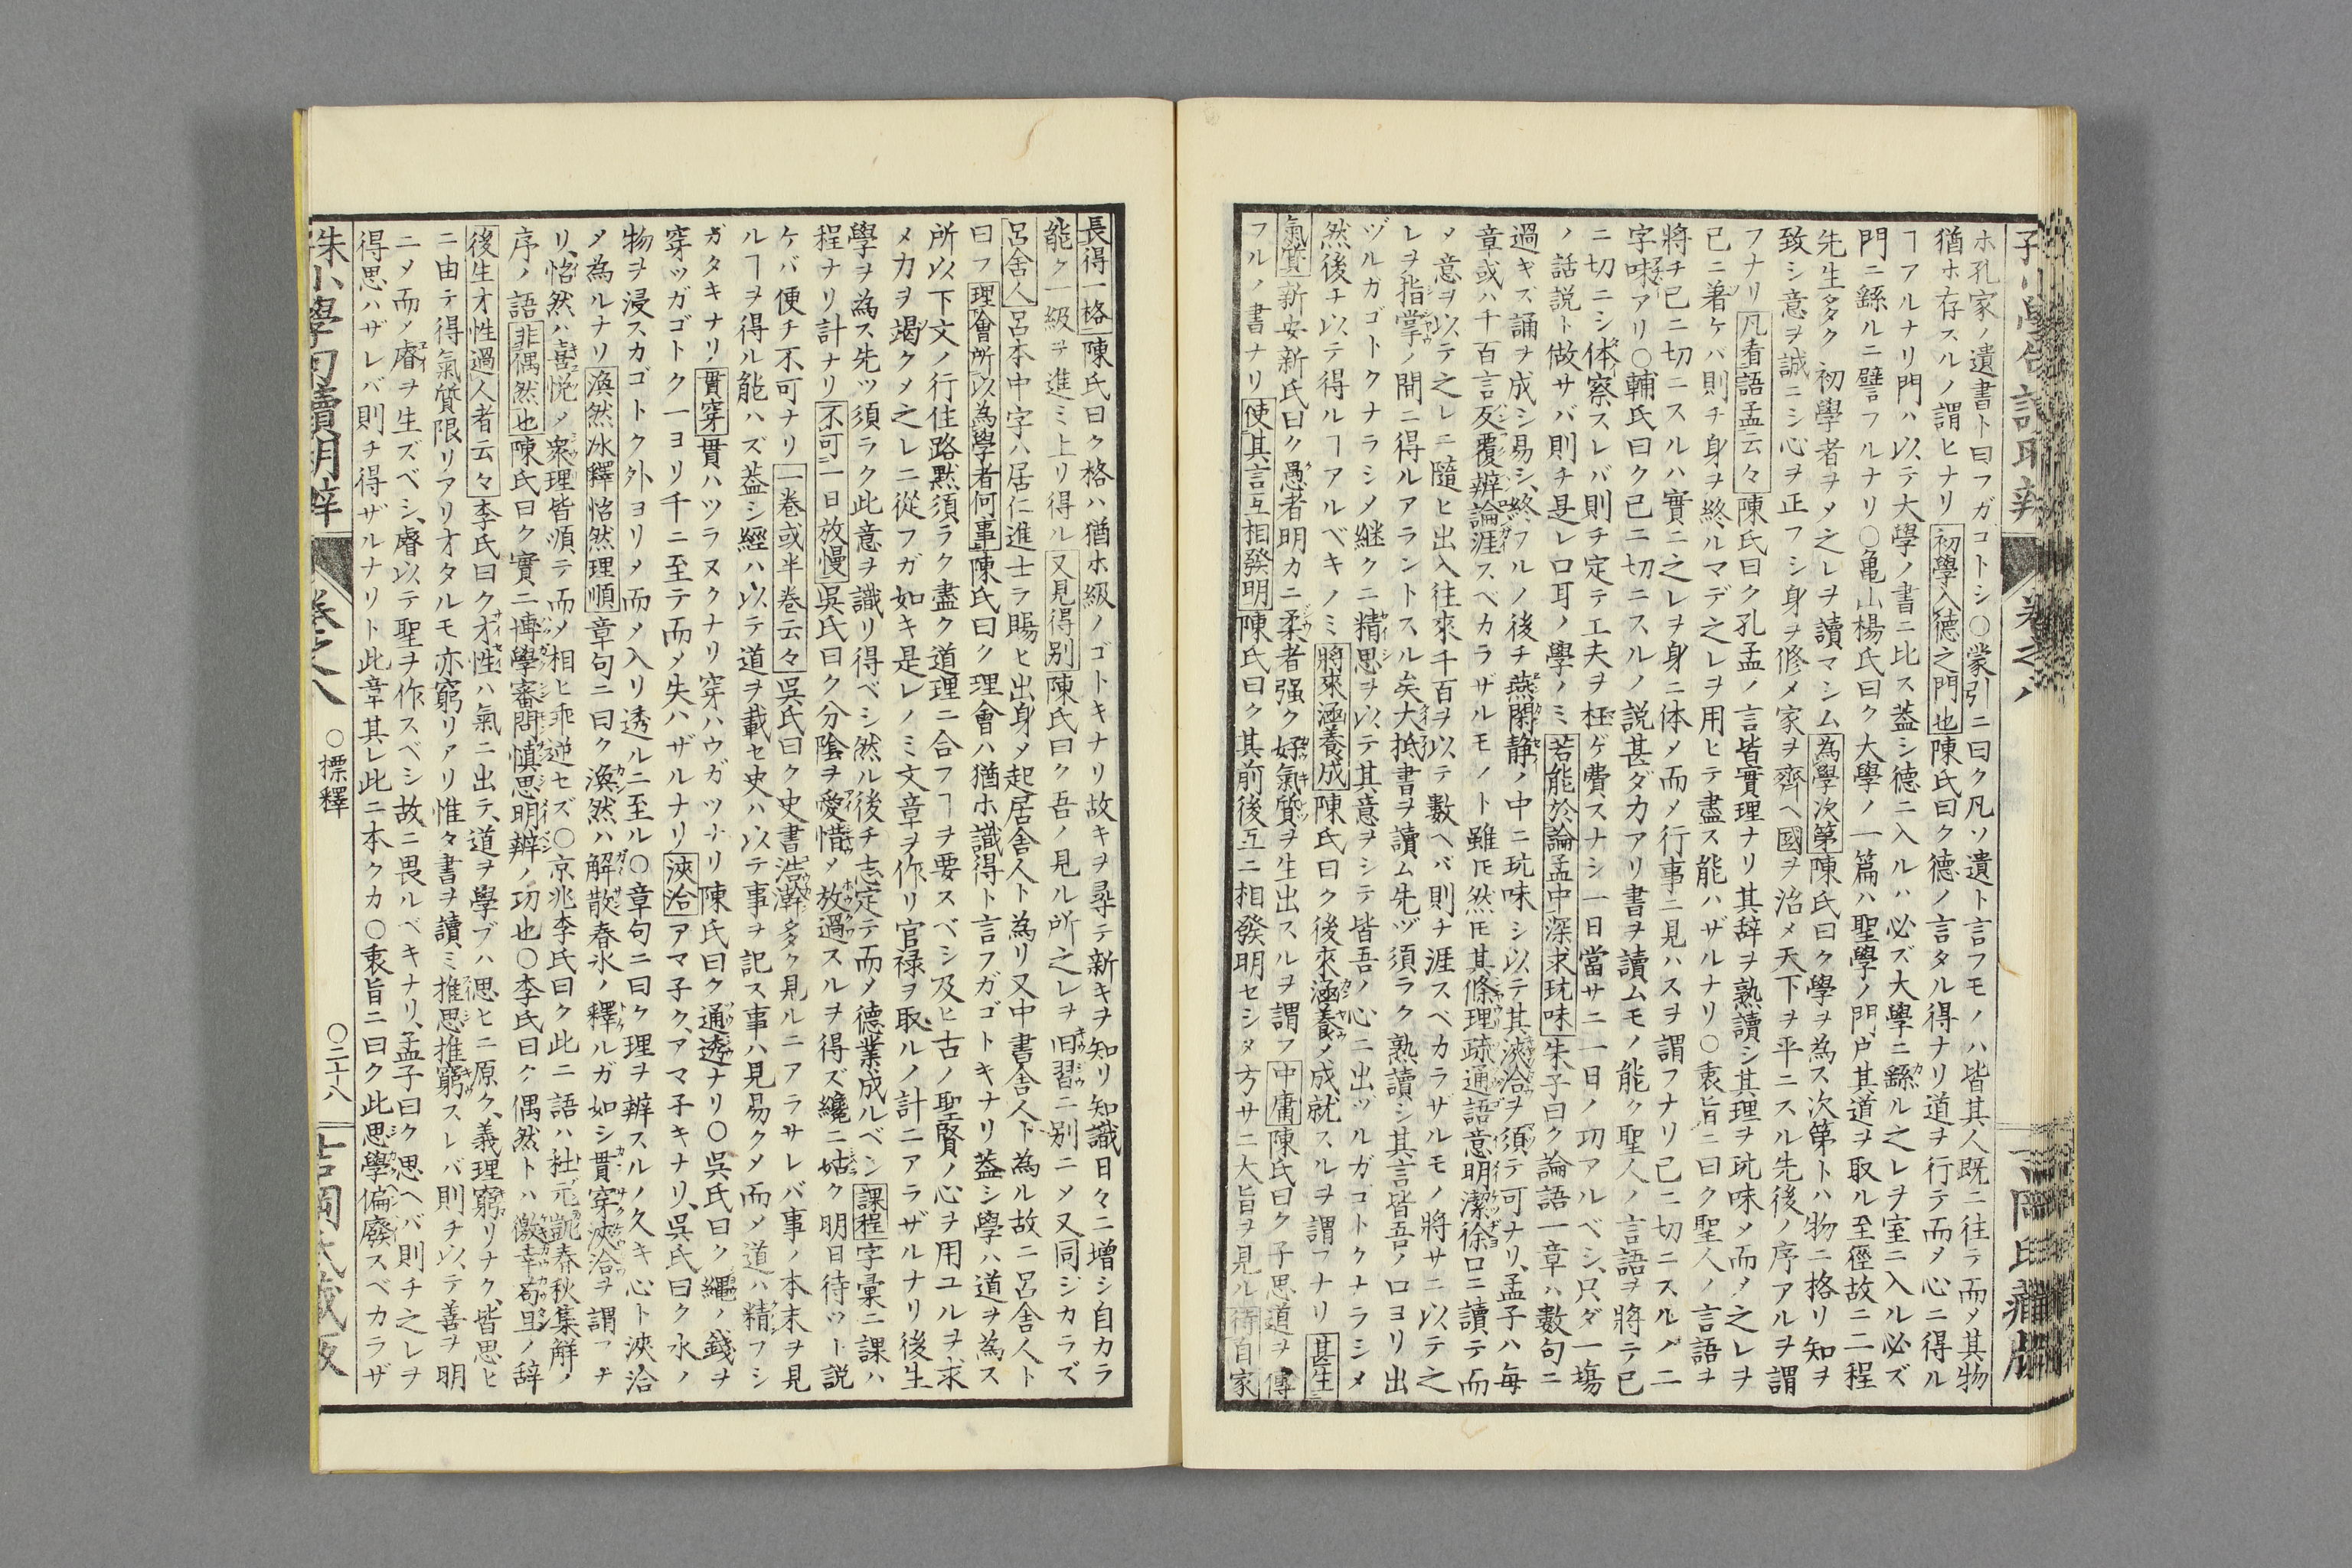 ホ孔家ノ遺書ト曰フガコトシ○蒙引ニ曰ク凡ソ遺ト言フモノハ皆其人既ニ往テ而メ其物
猶ホ存スルノ謂ヒナリ初學入德之門也陳氏曰ク德ノ言タル得ナリ道ヲ行テ而メ心ニ得ル
ヿアルナリ門ハ以テ大學ノ書ニ比ス蓋シ德ニ入ルハ必ズ大學ニ繇ル之レヲ室ニ入ル必ズ
門ニ繇ルニ譬フルナリ○亀山楊氏曰ク大學ノ一篇ハ聖學ノ門戸其道ヲ取ル至徑故ニ二程
先生タタク初學者ヲメ之レヲ讀マシム為學次第陳氏曰ク學ヲ為ス次第トハ物ニ格リ知ヲ
致シ意ヲ誠ニシ心ヲ正フシ身ヲ修メ家ヲ齊ヘ國ヲ治メ天下ヲ平ニスル先後ノ序アルヲ謂
フナリ凡看語孟云々陳氏曰ク孔孟ノ言皆實理ナリ其辞ヲ熟讀シ其理ヲ玩味メ而メ之レヲ
己ニ著ケバ則チ身ヲ終ルマデ之レヲ用ヒテ盡ス能ハザルナリ○衷旨ニ曰ク聖人ノ言語ヲ
將チ己ニ切ニスルハ實ニ之レヲ身ニ体メ而メ行事ニ見ハスヲ謂フナリ己ニ切ニスルノ二
字味アリ○輔氏曰ク己ニ切ニスルノ説甚ダ力アリ書ヲ讀ムモノ能ク聖人ノ言語ヲ將テ己
ニ切ニシ体察スレバ則チ定テ工夫ヲ枉ゲ費スナシ一日當サニ一日ノ功アルベシ只ダ一塲
ノ話説ト做サバ則チ是レ口耳ノ學ノミ若能於論孟中深求玩味朱子曰ク論語一章ハ數句ニ
過ギズ誦ヲ成シ易シ終フルノ後チ燕閑静ノ中ニ玩味シ以テ其浹洽ヲ須テ可ナリ孟子ハ毎
章或ハ千百言反覆辨論涯スベカラザルモノト雖𪜈然𪜈其條理疏通語意明潔徐口ニ讀テ而
メ意ヲ以テ之レニ隨ヒ出入往來千百ヲ以テ數ヘバ則チ涯スベカラザルモノ將サニ以テ之
レヲ指掌ノ間ニ得ルアラントスル矣大抵書ヲ讀ム先ヅ須ラク熟讀シ其言皆吾ノ口ヨリ出
ヅルガゴトクナラシメ継クニ精思ヲ以テ其意ヲシテ皆吾ノ心ニ出ヅルガゴトクナラシメ
然後チ以テ得ルヿアルベキノミ將來涵養成陳氏曰ク後來涵養メ成就スルヲ謂フナリ甚生
氣質新安新氏曰ク愚者明カニ柔者强ク好氣質ヲ生出スルヲ謂フ中庸陳氏曰ク子思道ヲ傳
フルノ書ナリ使其言互相發明陳氏曰ク其前後互ニ相發明セシタ方サニ大旨ヲ見ル待自家
長得一格陳氏曰ク格ハ猶ホ級ノゴトキナリ故キヲ尋テ新キヲ知リ知識日々ニ增シ自カラ
能ク一級ヲ進ミ上リ得ル又見得別陳氏曰ク吾ノ見ル所之レヲ旧習ニ別ニメ又同ジカラズ
呂舍人呂本中字ハ居仁進士ヲ賜ヒ出身メ起居舍人ト為リ又中書舍人ト為ル故ニ呂舍人ト
曰フ理會所以為學者何事陳氏曰ク理會ハ猶ホ識得ト言フガゴトキナリ蓋シ學ハ道ヲ為ス
所以下文ノ行住路黙須ラク盡ク道理ニ合フヿヲ要スベシ及ヒ古ノ聖賢ノ心ヲ用ユルヲ求
メ力ヲ竭クメ之レニ從フガ如キ是レノミ文章ヲ作リ官禄ヲ取ルノ計ニアラザルナリ後生
學ヲ為ス先ツ須ラク此意ヲ識リ得ベシ然ル後チ志定テ而メ德業成ルベシ課程字彙ニ課ハ
程ナリ計ナリ不可一日放慢吳氏曰ク分陰ヲ愛惜メ放過スルヲ得ズ纔ニ姑ク明日待ツト説
ケバ便チ不可ナリ一巻或半巻云々吳氏曰ク史書浩澣多ク見ルニアラサレバ事ノ本末ヲ見
ルヿヲ得ル能ハズ蓋シ經ハ以テ道ヲ載セ史ハ以テ事ヲ記ス事ハ見易クメ而メ道ハ精フシ
ガタキナリ貫穿貫ハツラヌクナリ穿ハウガツナリ陳氏曰ク通透ナリ○吳氏曰ク繩ノ錢ヲ
穿ツガゴトク一ヨリ千ニ至テ而メ失ハザルナリ浹洽アマ子ク、アマ子キナリ、吳氏曰ク水ノ
物ヲ浸スカゴトク外ヨリメ而メ入リ透ルニ至ル○章句ニ曰ク理ヲ辨スルノ久キ心ト浹洽
メ為ルナリ渙然冰釋怡然理順章句ニ曰ク渙然ハ解散春氷ノ釋ルガ如シ貫穿浹洽ヲ謂フナ
リ、怡然ハ喜悦メ衆理皆順テ而メ相ヒ乖逆セズ○京兆李氏曰ク此ニ語ハ杜元凱春秋集解ノ
序ノ語非偶然也陳氏曰ク實ニ博學審問慎思明辨ノ功也○李氏曰ク偶然トハ徼幸苟且ノ辞
後生才性過人者云々李氏曰ク才性ハ氣ニ出テ、道ヲ學ブハ思ヒニ原ク、義理窮リナク、皆思ヒ
ニ由テ得氣質限リアリオタルモ亦窮リアリ惟タ書ヲ讀ミ推思推窮スレバ則チ以テ善ヲ明
ニメ而メ睿ヲ生ズベシ、睿以テ聖ヲ作スベシ故ニ畏ルベキナリ、孟子曰ク思ヘバ則チ之レヲ
得思ハザレバ則チ得ザルナリト此章其レ此ニ本クカ○衷旨ニ曰ク此思學偏廢スベカラザ
朱小學句讀明辨　巻之八　○標釋　○二十八　吉岡氏藏版